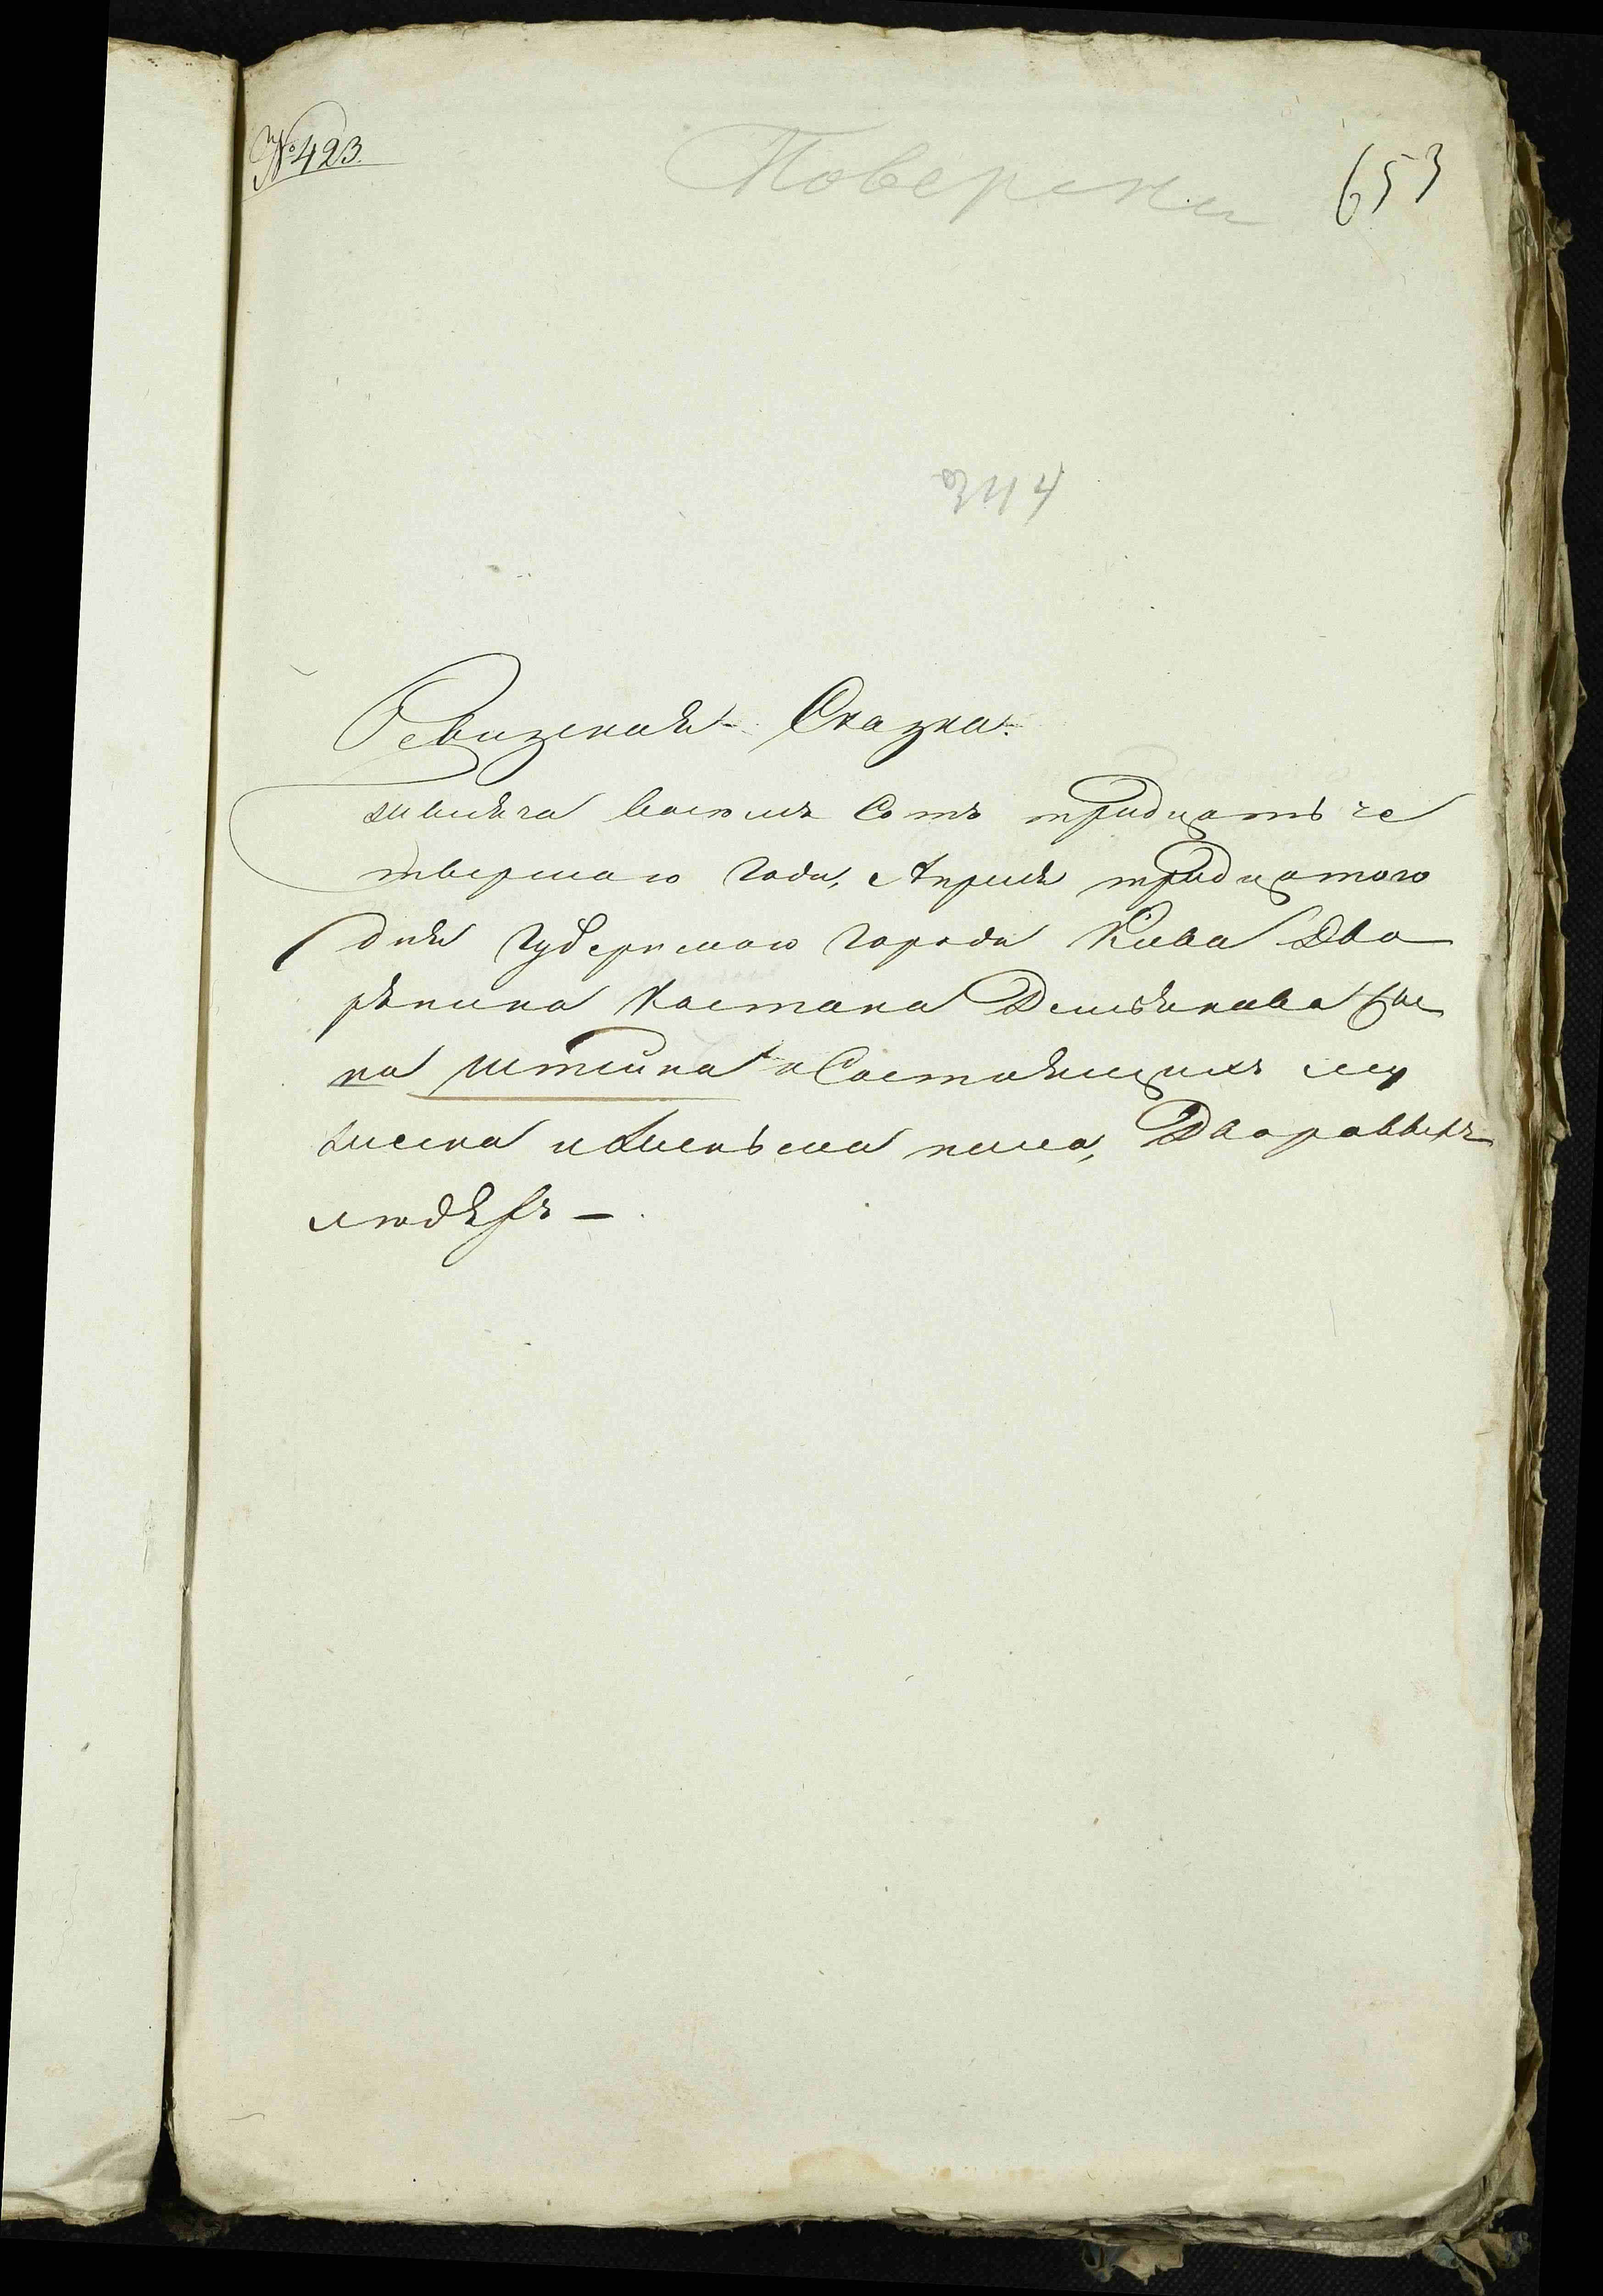 № 423.
Поверены
653
Ревизская Сказка.
тысяча восемь Сотъ тридцать че
твертаго Года, Апреля тридцатого
дня Губернскаго Города Киева Дво
рянина Костана Демьянова сы
на о Состоящихъ му
жеска и женьска пола, Дворовыхъ
людяхъ —